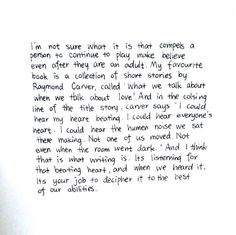 I'm not sure what it is that compels a
person to continue to play make believe
even after they are an adult. My favourite
book is a collection of short stories by
Raymond Carver, called 'What we talk about
when we talk about love'. And in the colsing
line of the title story, Carver says 'I could
hear my heart beating. I could hear everyone's
heart. I could hear the human noise we sat
there making. Not one of us moved. Not
even when the room went dark.' And I think
that is what writing is. Its listening for
that beating heart, and when we heard it.
Its your job to decipher it to the best
of our abilities.